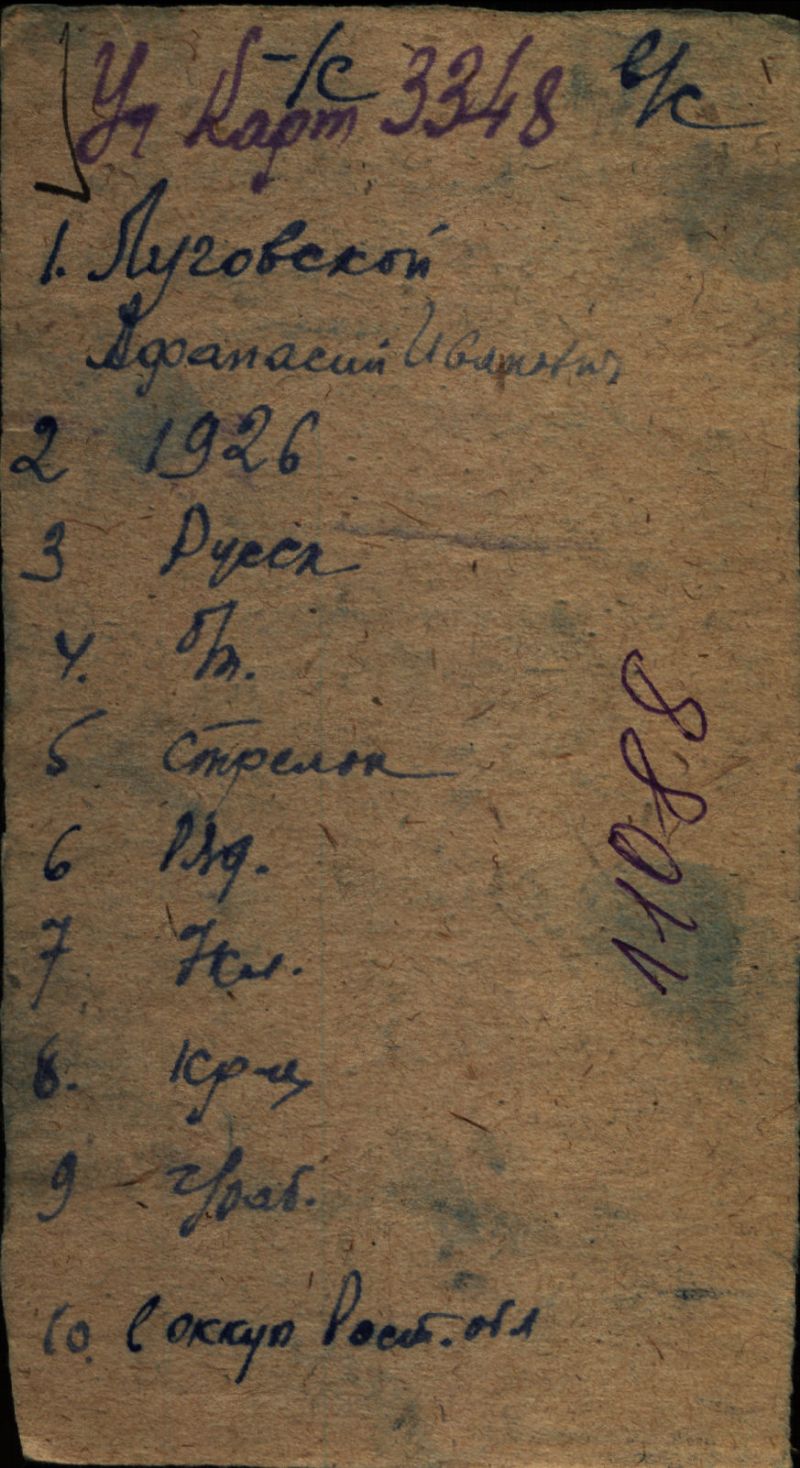 Уч Карт 3348 в/с
1. Луговской
Афанасий Иванович
2 1926
3 Русск
4. б/п.
5 Стрелок
6 Ряд.
7 7 кл.
8. Кр-н
9 ч/раб.
10. в оккуп Рост. обл
11088